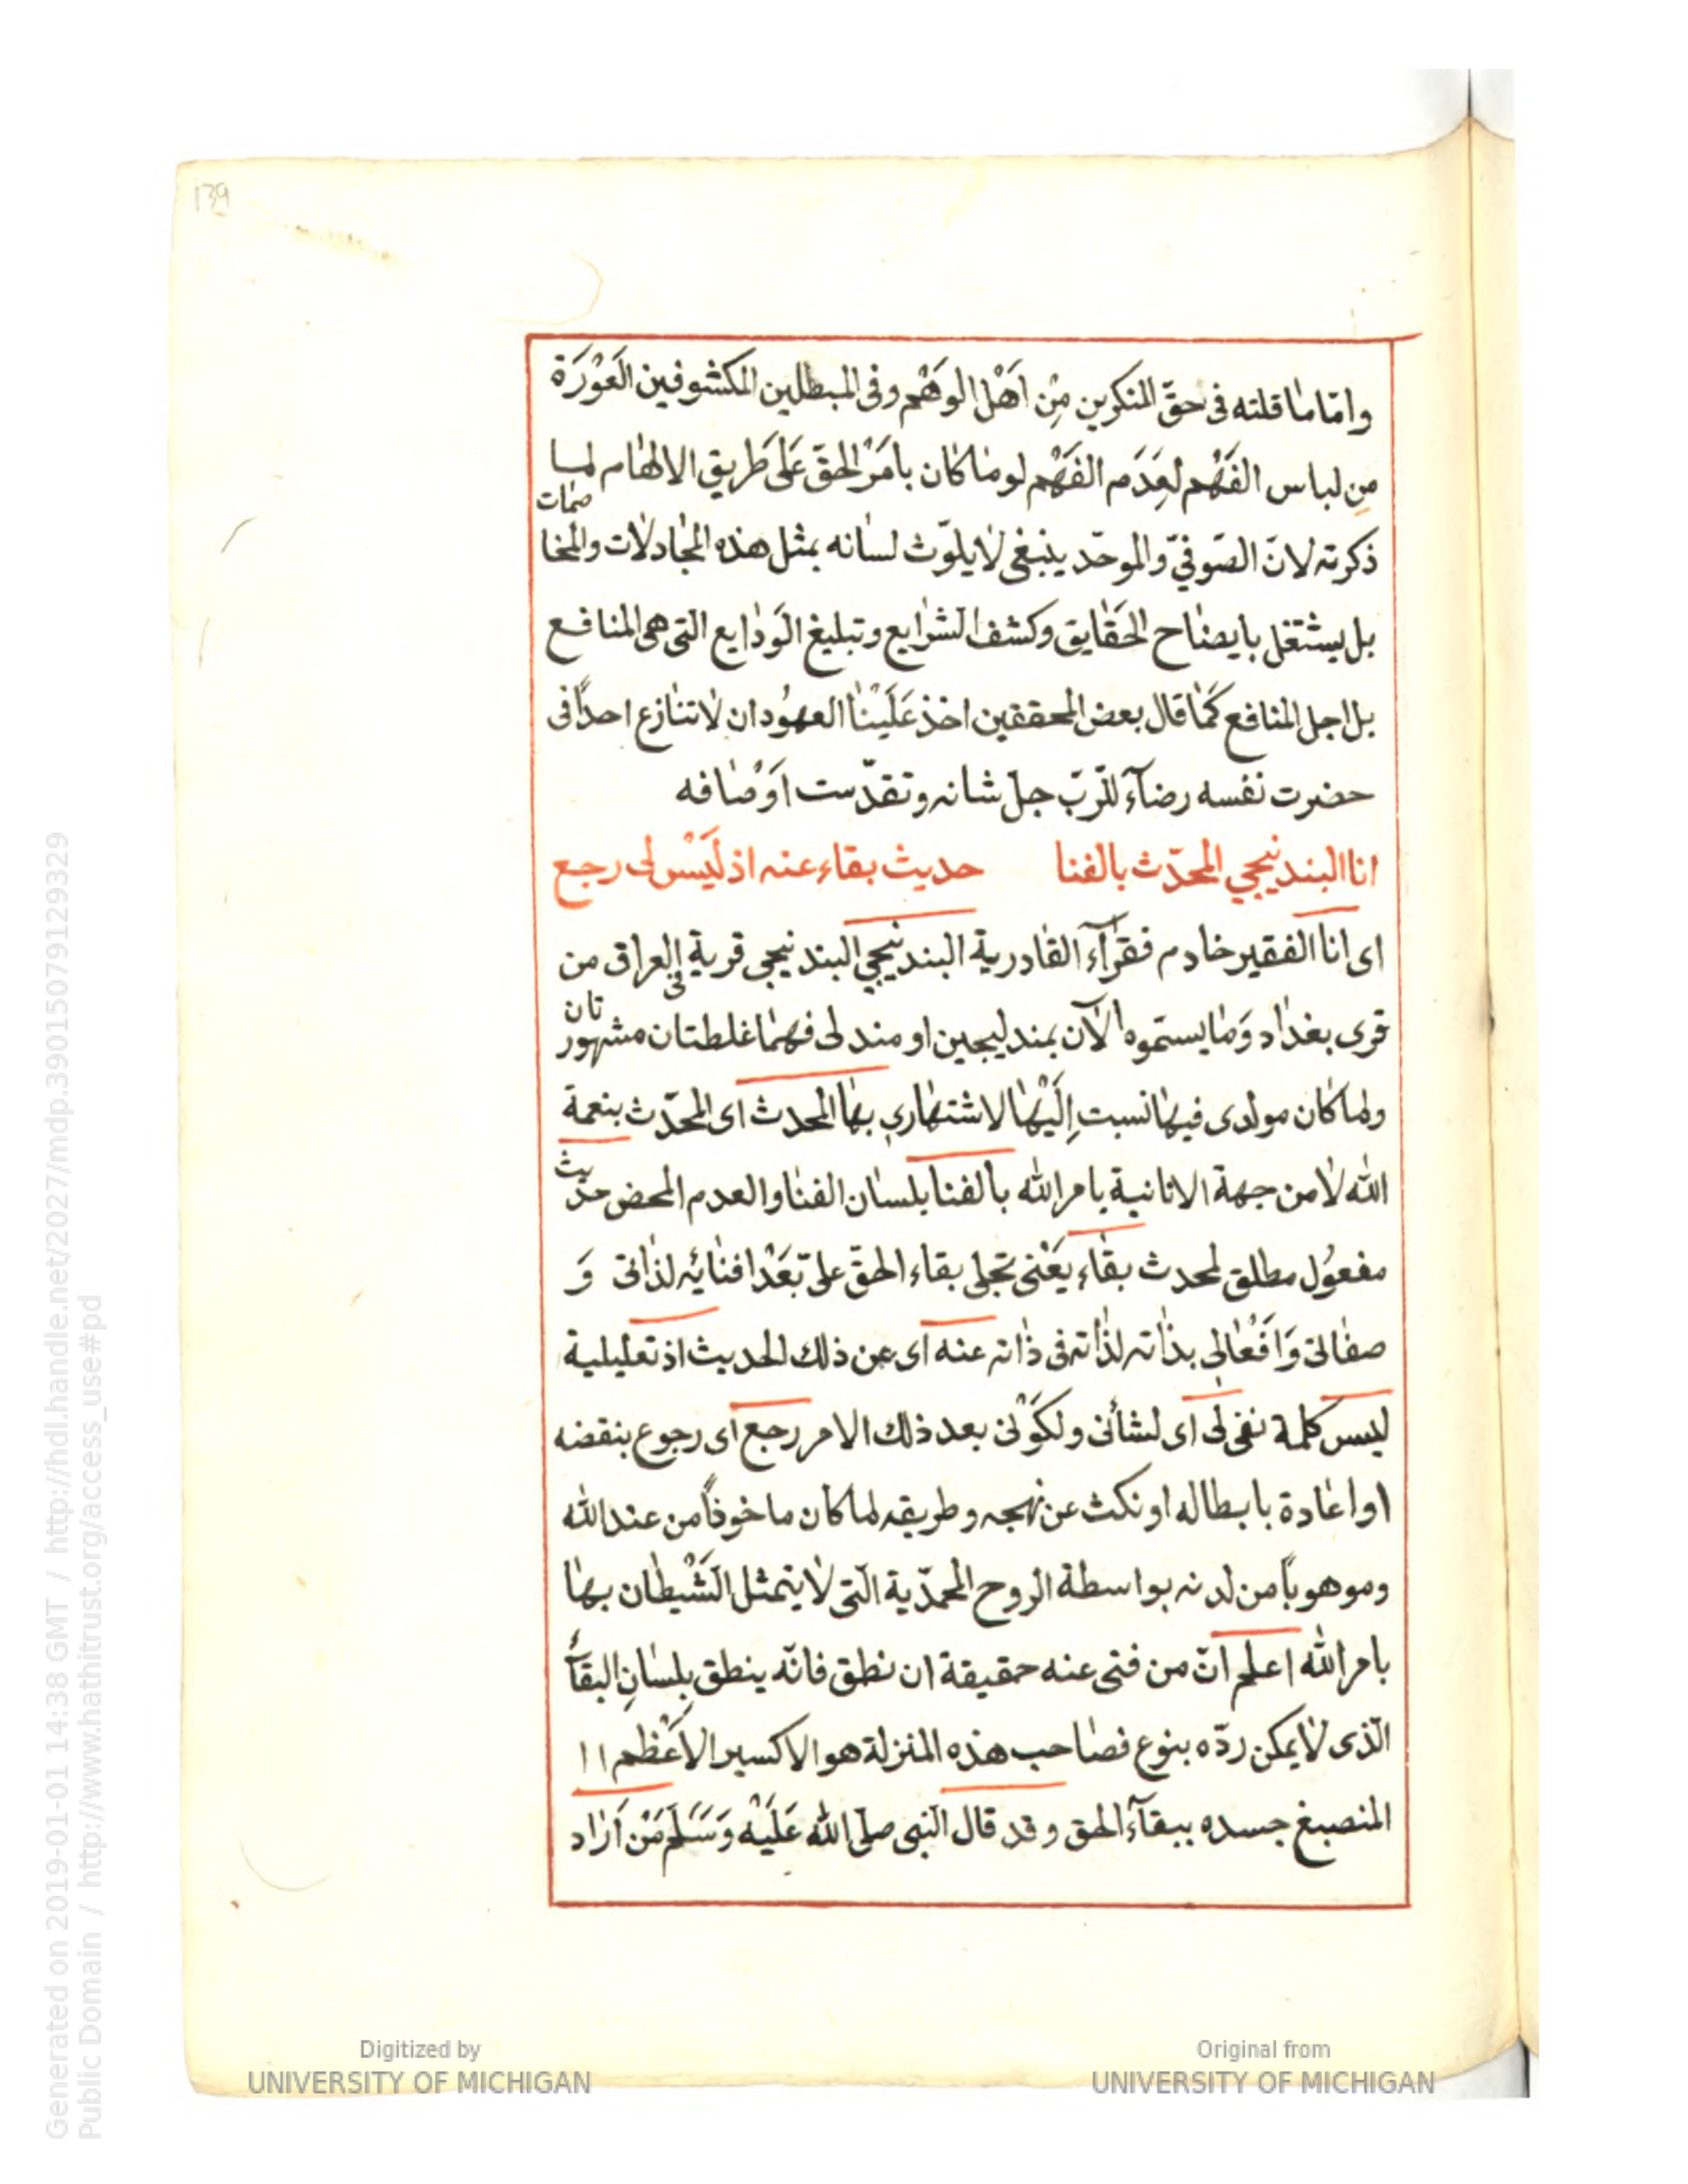 139
وامّا ما قلته فى حقّ المنكرين مِنْ اَهْل الوهْم وفى المبطلين المكشوفين العَوْرَة
مِن لباس الفَهْم لعِدَم الفَهْم لو ما كان بامَرْ الحَقّ عَلى طَريق الالهام لما
ذكرته لانّ الصّوفىّ والموحّد ينبغى لا يلوّث لسانه بمثل هذه المجادلات والمخا
صمات
بل يشتغل بايضاح الحقايق وكشف الشرايع وتبليغ الوَدايع التى هى المنافع
بل اجل المنافع كَما قال بعض المحققين اخذ عَلَيْنا العهُود ان لا تنازع احداً فى
حضرت نفسه رضآء للرّبّ جلّ شانه وتقدّست اوَصْافه
انا البندنيجي المحدّث بالفنا حديث بقاء عنه اذ لَيْسَ لى رجع
اى انا الفقير خادم فقرآء القادرية البندنيجي البندنيجى قرية فى العراق من
قرى بغداد وَما يسمّوه الآن بمندليجين او مندلى فهما غلطتان مشهور
تان
ولما كان مولدى فيها نسبت اِلَيْها لاشتهارى بها المحدث اى المحدّث بنعمة
الله لا من جهة الانانية بامر الله بالفنا بلسان الفنا والعدم المحض حد
يث
مفعوُل مطلق لمحدث بقاء يَعْنى تجلى بقاء الحقّ علىّ بَعْد افنائه لذاتى وَ
صفاتى وَافعْالى بذاته لذاته فى ذاته عنه اى عن ذلك الحديث اذ تعليلية
ليس كلمة نفى لى اى لشأنى ولكوْنى بعد ذلك الامر رجع اى رجوع بنقضه
او اعادة بابطاله او نكث عن نهجه وطريقه لما كان ماخوذاً من عند الله
وموهوباً من لدنه بواسطة الروح المحمدّية التى لا يتمثل الشَيْطان بها
بامر الله اعلم انّ من فنى عنه حقيقة ان نطق فانّه ينطق بلسانِ البقآء
الّذى لا يمكن ردّه بنوع فصاحب هذه المنزلة هو الاكسير الاعَظم ١١
المنصبغ جسده ببقآء الحق وقد قال النبى صلى الله عَلَيْه وَسَلَم مَنْ اَرَاد
Digitized by
UNIVERSITY OF MICHIGAN
Original from
UNIVERSITY OF MICHIGAN
Generated on 2019-01-01 14:38 GMT / http://hdl.handle.net/2027/mdp.39015079129329
Public Domain / http://www.hathitrust.org/access_use#pd